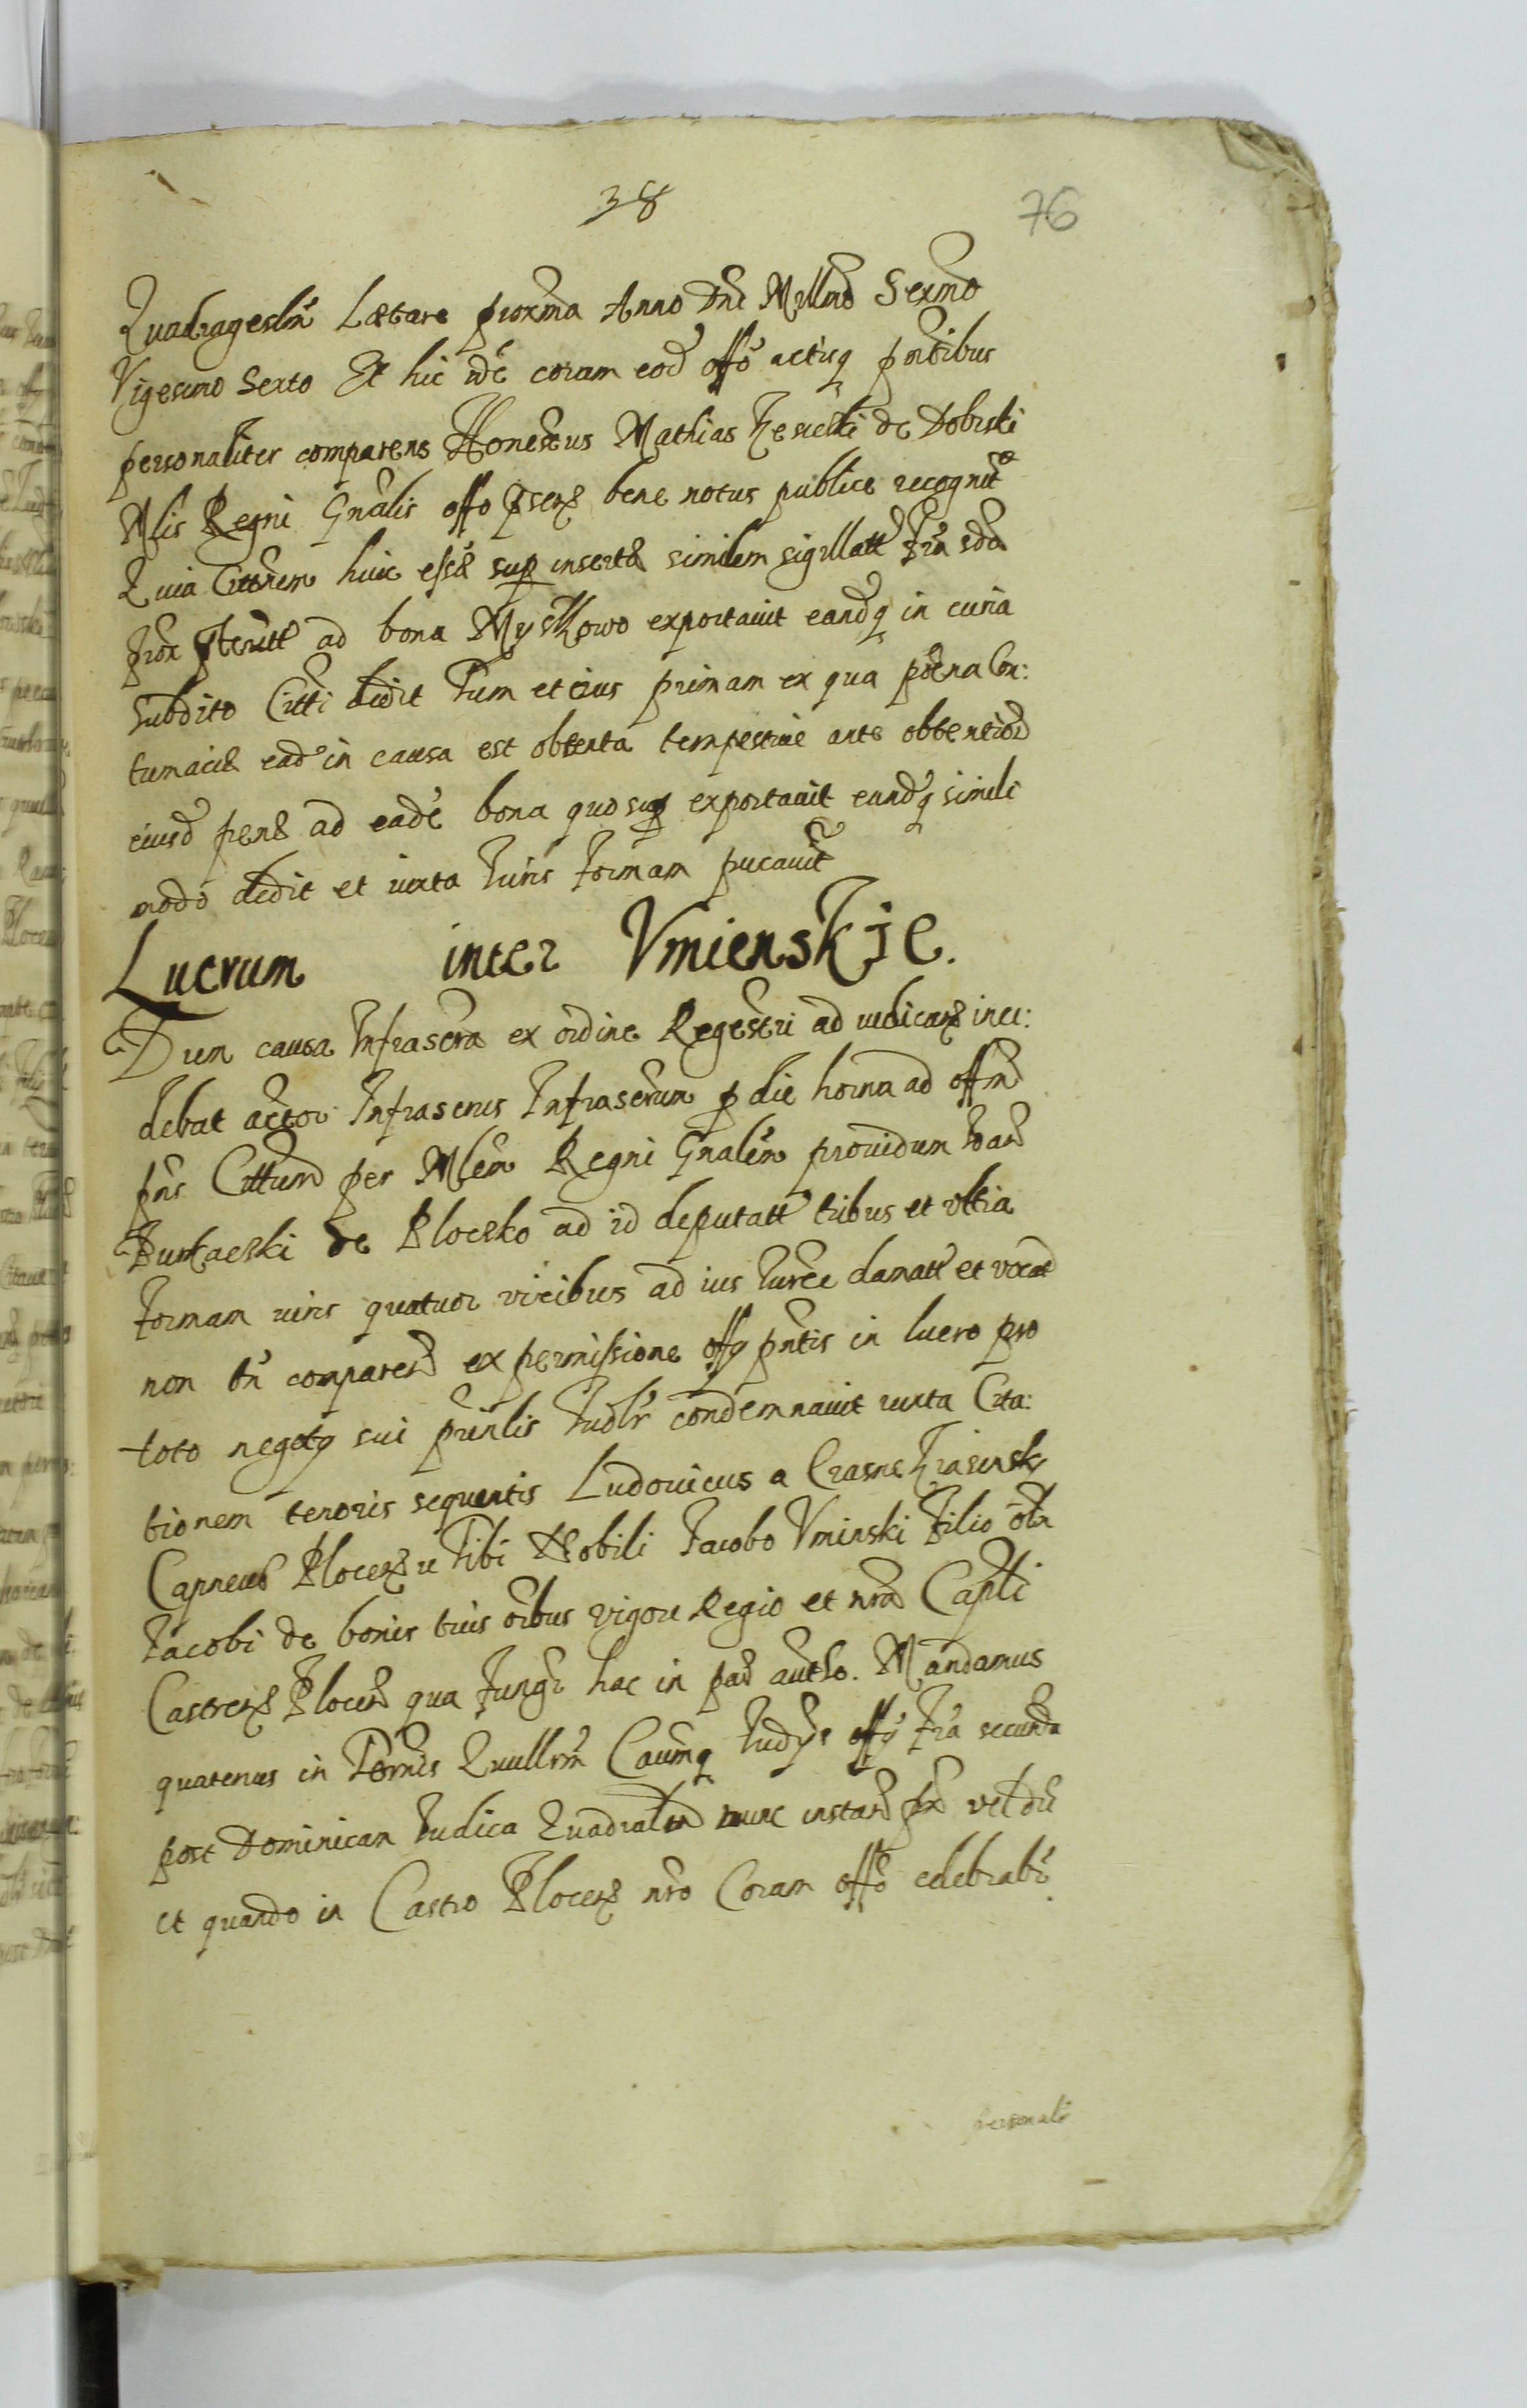 38
76
Quadrageslm Lætare proxma Anno Dni Millmo Sexmo
Vigesimo Sexto Et hic idē coram eod offo actisq pntibus
personaliter comparens Honestus Mathias de Dobrski
Mlis Regni Gnalis offo bene notus publice recognit
Quia Cittonem huic esse sup inserta similem sigillatt
ad bona Myszkowo exportavit eandq in curia
Subdito Citti dedit Tum et eius primam ex qua poena Con:
tumaciæ ead in causa est obtenta tempestive ante obtentiod
eiusd penæ ad eadē bona quo sup exportavit eandq simili
modo dedit et iuxta Iuris formam pucavit
Lucrum inter Vmienskie.
Dum causa Infrascra ex ordine Regestri ad iudicand inci:
debat actor Infrascrus Infrascrum p die horna ad offm
pns Cittum per Mlem Regni Gnalem providum
de Ploczko ad id deputatt tribus et ultia
formam iuris quatuor vicibus ad ius Iurce clamatt et vocat
non tn comparen ex permissione offy pntis in lucro pro
toto negoty sui prinlis Iudlr condemnavit iuxta Cita:
tionem tenoris sequentis Ludovicus a Crasne Krasinsky
Capneus Plocen Tibi Nobili Iacobo Vminski Filio olm
Iacobi de bonis tuis oibus vigore Regio et nra Capli
Castren Plocen qua fungr hac in par autho. Mandamus
quatenus in Termis Qullrm Caumq Iudye offy fria secunda
post Dominicam Iudica Quadralem nunc instan vel dū
et quando in Castro Plocen nro Coram offo celebrabr
personalr